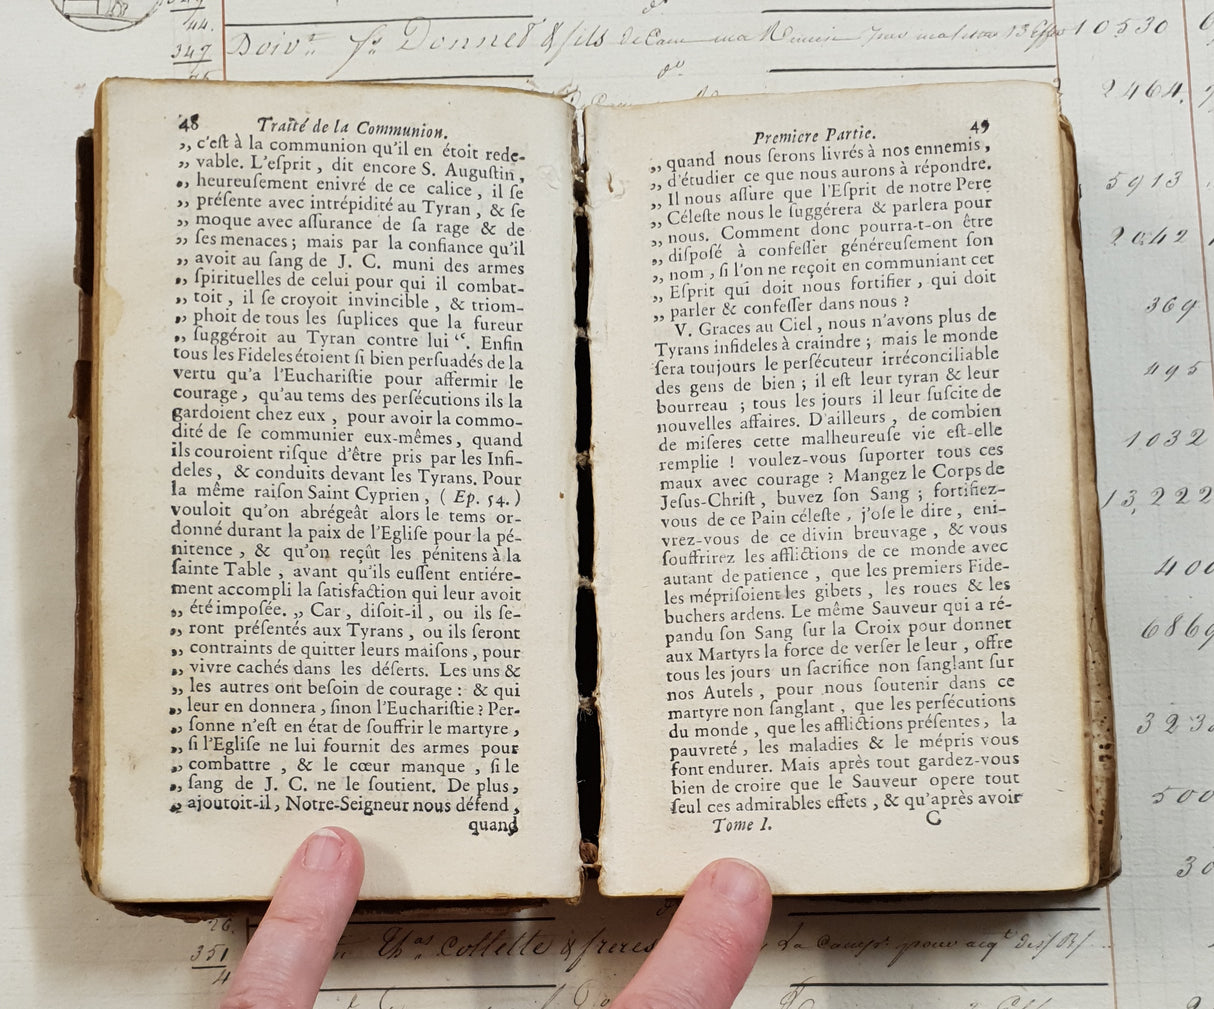 44.
347
Doivt. Frs Donnet & fils
10530
2464.
48 Traité de la Communion.
„ c'eſt à la communion qu'il en étoit rede-
„ vable. L'eſprit, dit encore S. Auguſtin,
„ heureuſement enivré de ce calice, il ſe
„ préſente avec intrépidité au Tyran, & ſe
„ moque avec aſſurance de ſa rage & de
„ ſes menaces; mais par la confiance qu'il
„ avoit au ſang de J. C. muni des armes
„ ſpirituelles de celui pour qui il combat-
„ toit, il ſe croyoit invincible, & triom-
„ phoit de tous les ſuplices que la fureur
„ ſuggéroit au Tyran contre lui “. Enfin
tous les Fideles étoient ſi bien perſuadés de la
vertu qu'a l'Euchariſtie pour affermir le
courage, qu'au tems des perſécutions ils la
gardoient chez eux, pour avoir la commo-
dité de ſe communier eux-mêmes, quand
ils couroient riſque d'être pris par les Infi-
deles, & conduits devant les Tyrans. Pour
la même raiſon Saint Cyprien, (Ep. 54.)
vouloit qu'on abrégeât alors le tems or-
donné durant la paix de l'Egliſe pour la pé-
nitence, & qu'on reçût les pénitens à la
ſainte Table, avant qu'ils euſſent entiére-
ment accompli la ſatisfaction qui leur avoit
„ été impoſée. „ Car, diſoit-il, ou ils ſe-
„ ront préſentés aux Tyrans, ou ils ſeront
„ contraints de quitter leurs maiſons, pour
„ vivre cachés dans les déſerts. Les uns &
„ les autres ont beſoin de courage: & qui
„ leur en donnera, ſinon l'Euchariſtie? Per-
„ ſonne n'eſt en état de ſouffrir le martyre,
„ ſi l'Egliſe ne lui fournit des armes pour
„ combattre, & le cœur manque, ſi le
„ ſang de J. C. ne le ſoutient. De plus,
„ ajoutoit-il, Notre-Seigneur nous défend,
quand
Premiere Partie. 49
„ quand nous ſerons livrés à nos ennemis,
„ d'étudier ce que nous aurons à répondre.
„ Il nous aſſure que l'Eſprit de notre Pere
„ Céleſte nous le ſuggérera & parlera pour
„ nous. Comment donc pourra-t-on être
„ diſpoſé à confeſſer généreuſement ſon
„ nom, ſi l'on ne reçoit en communiant cet
„ Eſprit qui doit nous fortifier, qui doit
„ parler & confeſſer dans nous?
V. Graces au Ciel, nous n'avons plus de
Tyrans infideles à craindre; mais le monde
ſera toujours le perſécuteur irréconciliable
des gens de bien; il eſt leur tyran & leur
bourreau; tous les jours il leur ſuſcite de
nouvelles affaires. D'ailleurs, de combien
de miſeres cette malheureuſe vie eſt-elle
remplie! voulez-vous ſuporter tous ces
maux avec courage? Mangez le Corps de
Jeſus-Chriſt, buvez ſon Sang; fortifiez-
vous de ce Pain céleſte, j'oſe le dire, eni-
vrez-vous de ce divin breuvage, & vous
ſouffrirez les afflictions de ce monde avec
autant de patience, que les premiers Fide-
les mépriſoient les gibets, les roues & les
buchers ardens. Le même Sauveur qui a ré-
pandu ſon Sang ſur la Croix pour donner
aux Martyrs la force de verſer le leur, offre
tous les jours un ſacrifice non ſanglant ſur
nos Autels, pour nous ſoutenir dans ce
martyre non ſanglant, que les perſécutions
du monde, que les afflictions préſentes, la
pauvreté, les maladies & le mépris vous
font endurer. Mais après tout gardez-vous
bien de croire que le Sauveur opere tout
ſeul ces admirables effets, & qu'après avoir
Tome I. C
5913
2042
369
495
1032
13,222
400
6869
323
500
30
26.
351
4
Thas Collette & freres